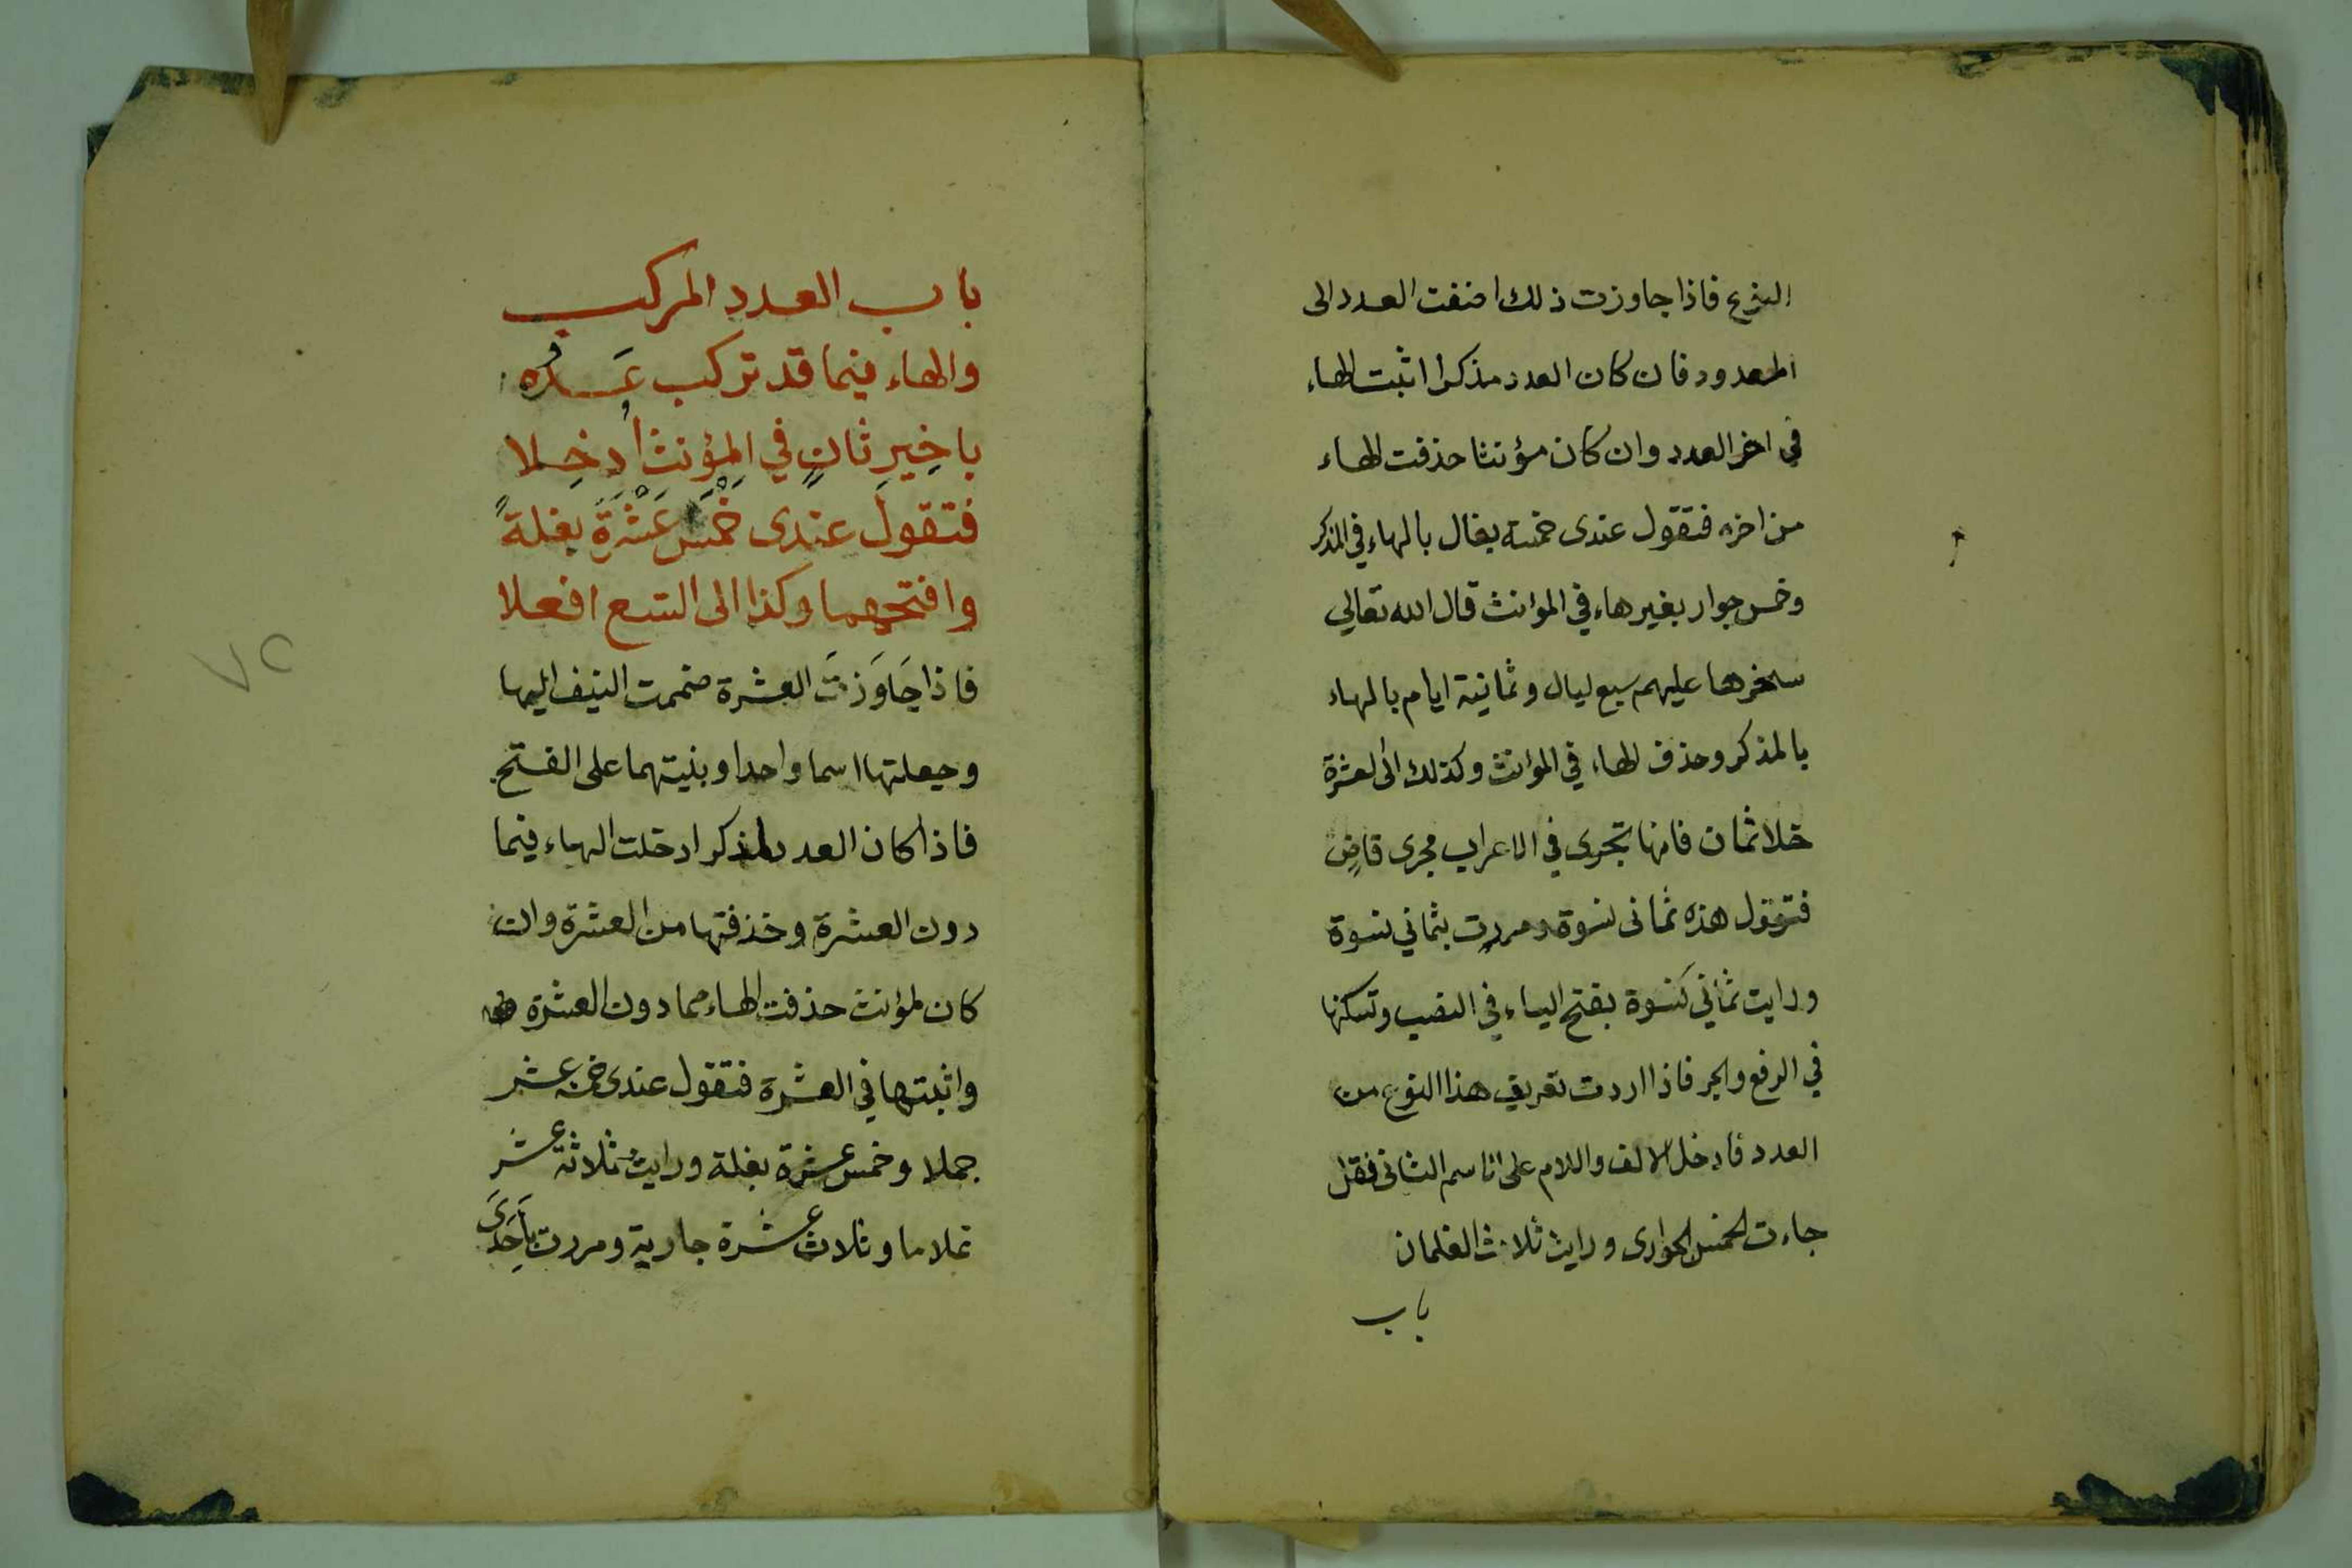 النوع فاذا جاوزت ذلك اضفت العدد الى
المعدود فان كان العدد مذكرا اثبت الهاء
في اخر العدد وان كان مؤنثا حذفت الهاء
من اخره فتقول عندى خمسة بغال بالهاء في المذكر
وخمس جوار بغير هاء في الموانث قال الله تعالي
سخرها عليهم سبع ليال وثمانية ايام بالهاء
بالمذكر وحذف الهاء في المؤانث وكذلك الى العشرة
خلا ثمان فانها تجرى في الاعراب مجرى قاضٍ
فتقول هذه ثمانى نسوة ومررت بثماني نسوة
ورايت ثماني نسوة بفتح الياء في النصب وتسكنها
في الرفع والجر فاذا اردت تعريف هذا النوع من
العدد فادخل الالف واللام على الاسم الثانى فقل
جاءت الخمس الجوارى ورايت ثلاث الغلمان
باب
باب العدد المركب
والهاء فيما قد تركب
باخِيرِ ثانٍ في المؤنث اُدخِلا
فتقول عندى خَمْسَ عَشْرَةَ بغلةً
وافتحهما وكذا الى التسع افعلا
فاذا جَاوَزتَ العشرة ضممت النيف اليها
وجعلتها اسما واحدا وبنيتهما على الفتح
فاذا كان العدد لمذكر ادخلت الهاء فيما
دون العشرة وحذفتها من العشرة وان
كان لمؤنث حذفت الهاء مما دون العشرة
واثبتها في العشرة فتقول عندى خمسة عشر
جملا وخمس عشرة بغلة ورايتُ ثلاثة عشر
غلاما وثلاث عشرة جارية ومررت بِاَحِدَىَ
٧٢